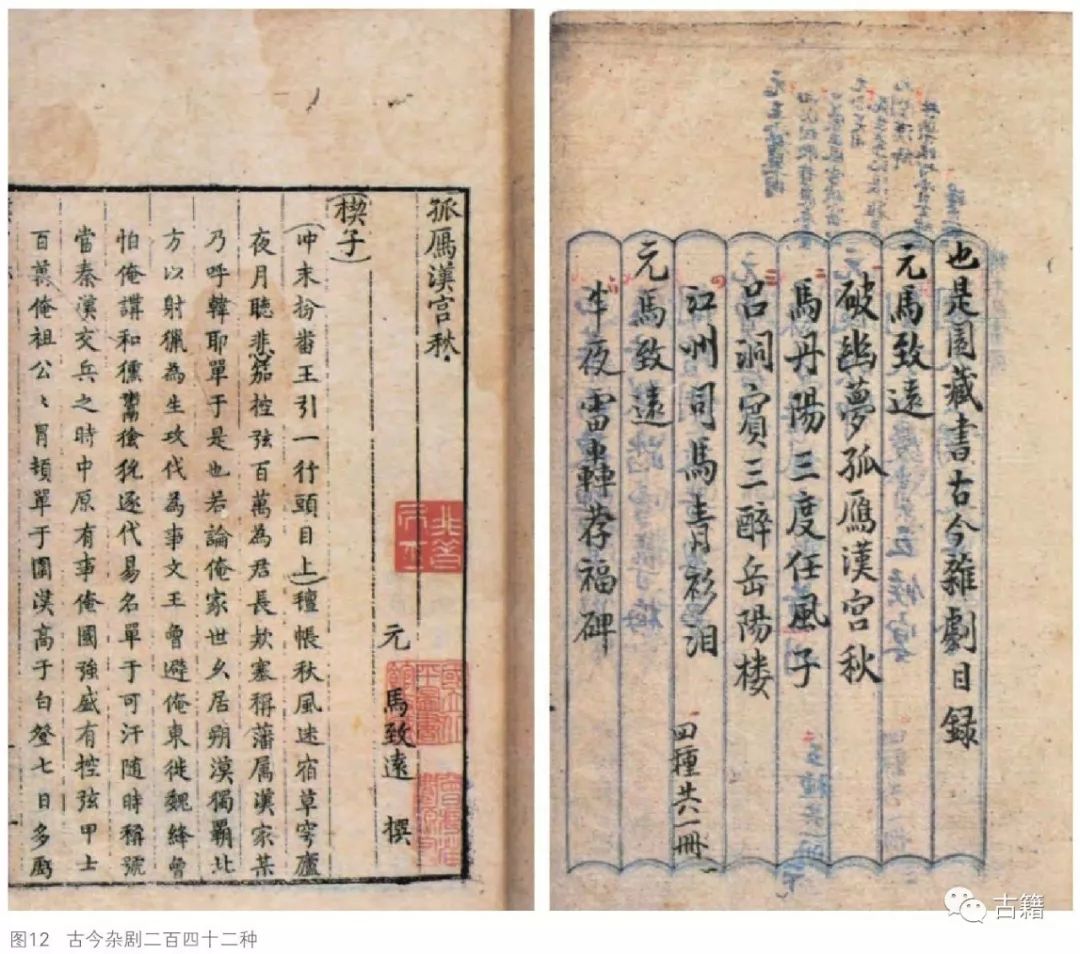 孤鴈漢宮秋
元 馬致遠 撰
(楔子)
(冲末扮畨王引一行頭目上)氊帳秋風迷宿草穹廬
夜月聽悲笳控弦百萬為君長欵塞稱藩属漢家某
乃呼韓耶單于是也若論俺家世乆居朔漠獨霸北
方以射獵為生攻伐為事文王曾避俺東徙魏絳曾
怕俺講和獯鬻獫狁逐代易名單于可汗随時稱號
當秦漢交兵之時中原有事俺國強盛有控弦甲士
百萬俺祖公〻冒頓單于圍漢高于白登七日多虧
也是園藏書古今雜劇目録
元馬致遠
破幽夢孤鴈漢宮秋
馬丹陽三度任風子
吕洞賓三醉岳陽楼
江州司馬青衫泪
四種共一冊
元馬致遠
半夜雷轟荐福碑
古籍
图12 古今杂剧二百四十二种